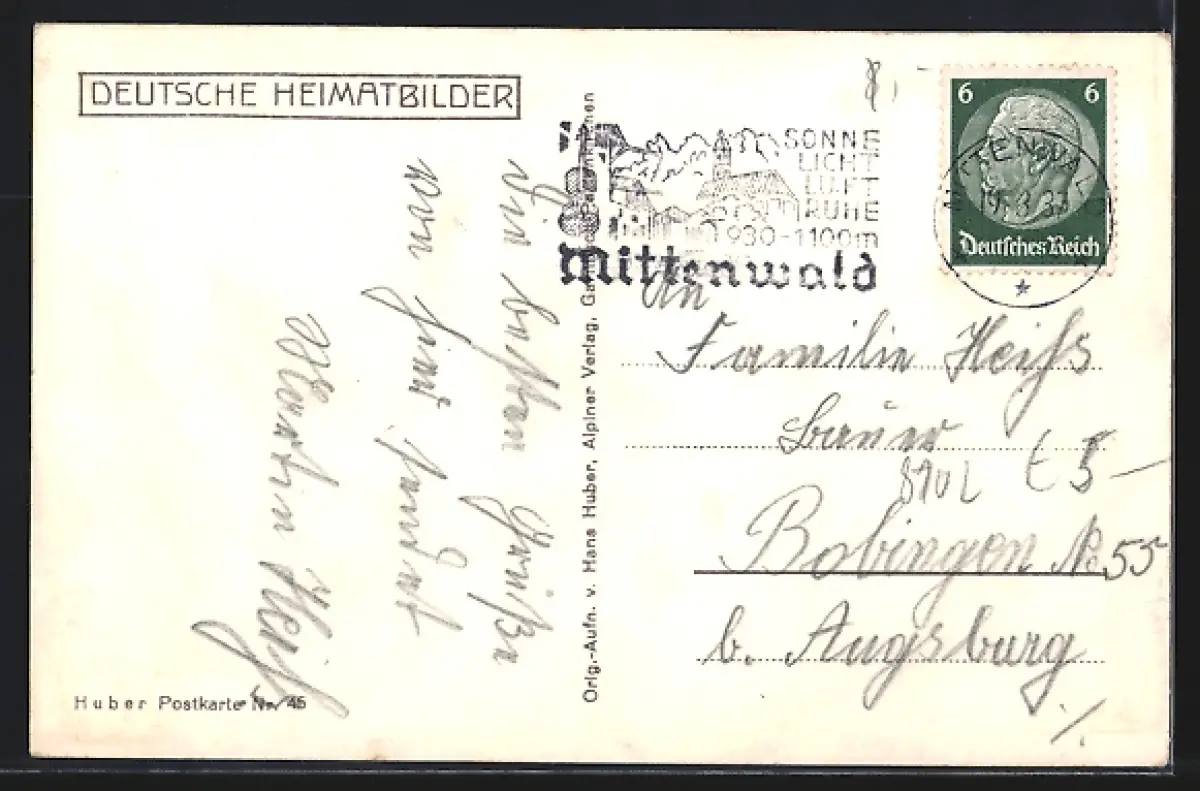 DEUTSCHE HEIMATBILDER
Die besten Grüße
von hier sendet
Martin Heiß
Huber Postkarte Nr. 45
Orig.-Aufn. v. Hans Huber, Alpiner Verlag, Garmisch-Partenkirchen
SONNE
LICHT
LUFT
RUHE
930-1100m
Mittenwald
MITTENWALD
19.3.37
6 6
Deutsches Reich
An
Familie Heiß
Bauer
Bobingen No 55
b. Augsburg